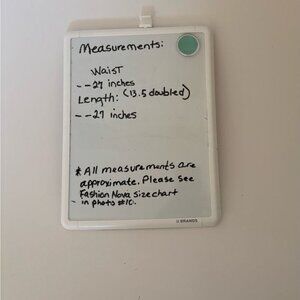 Measurements:
Waist
--27 inches
Length: (13.5 doubled)
--27 inches
* All measurements are
approximate. Please see
Fashion Nova size chart
in photo #10.
U BRANDS